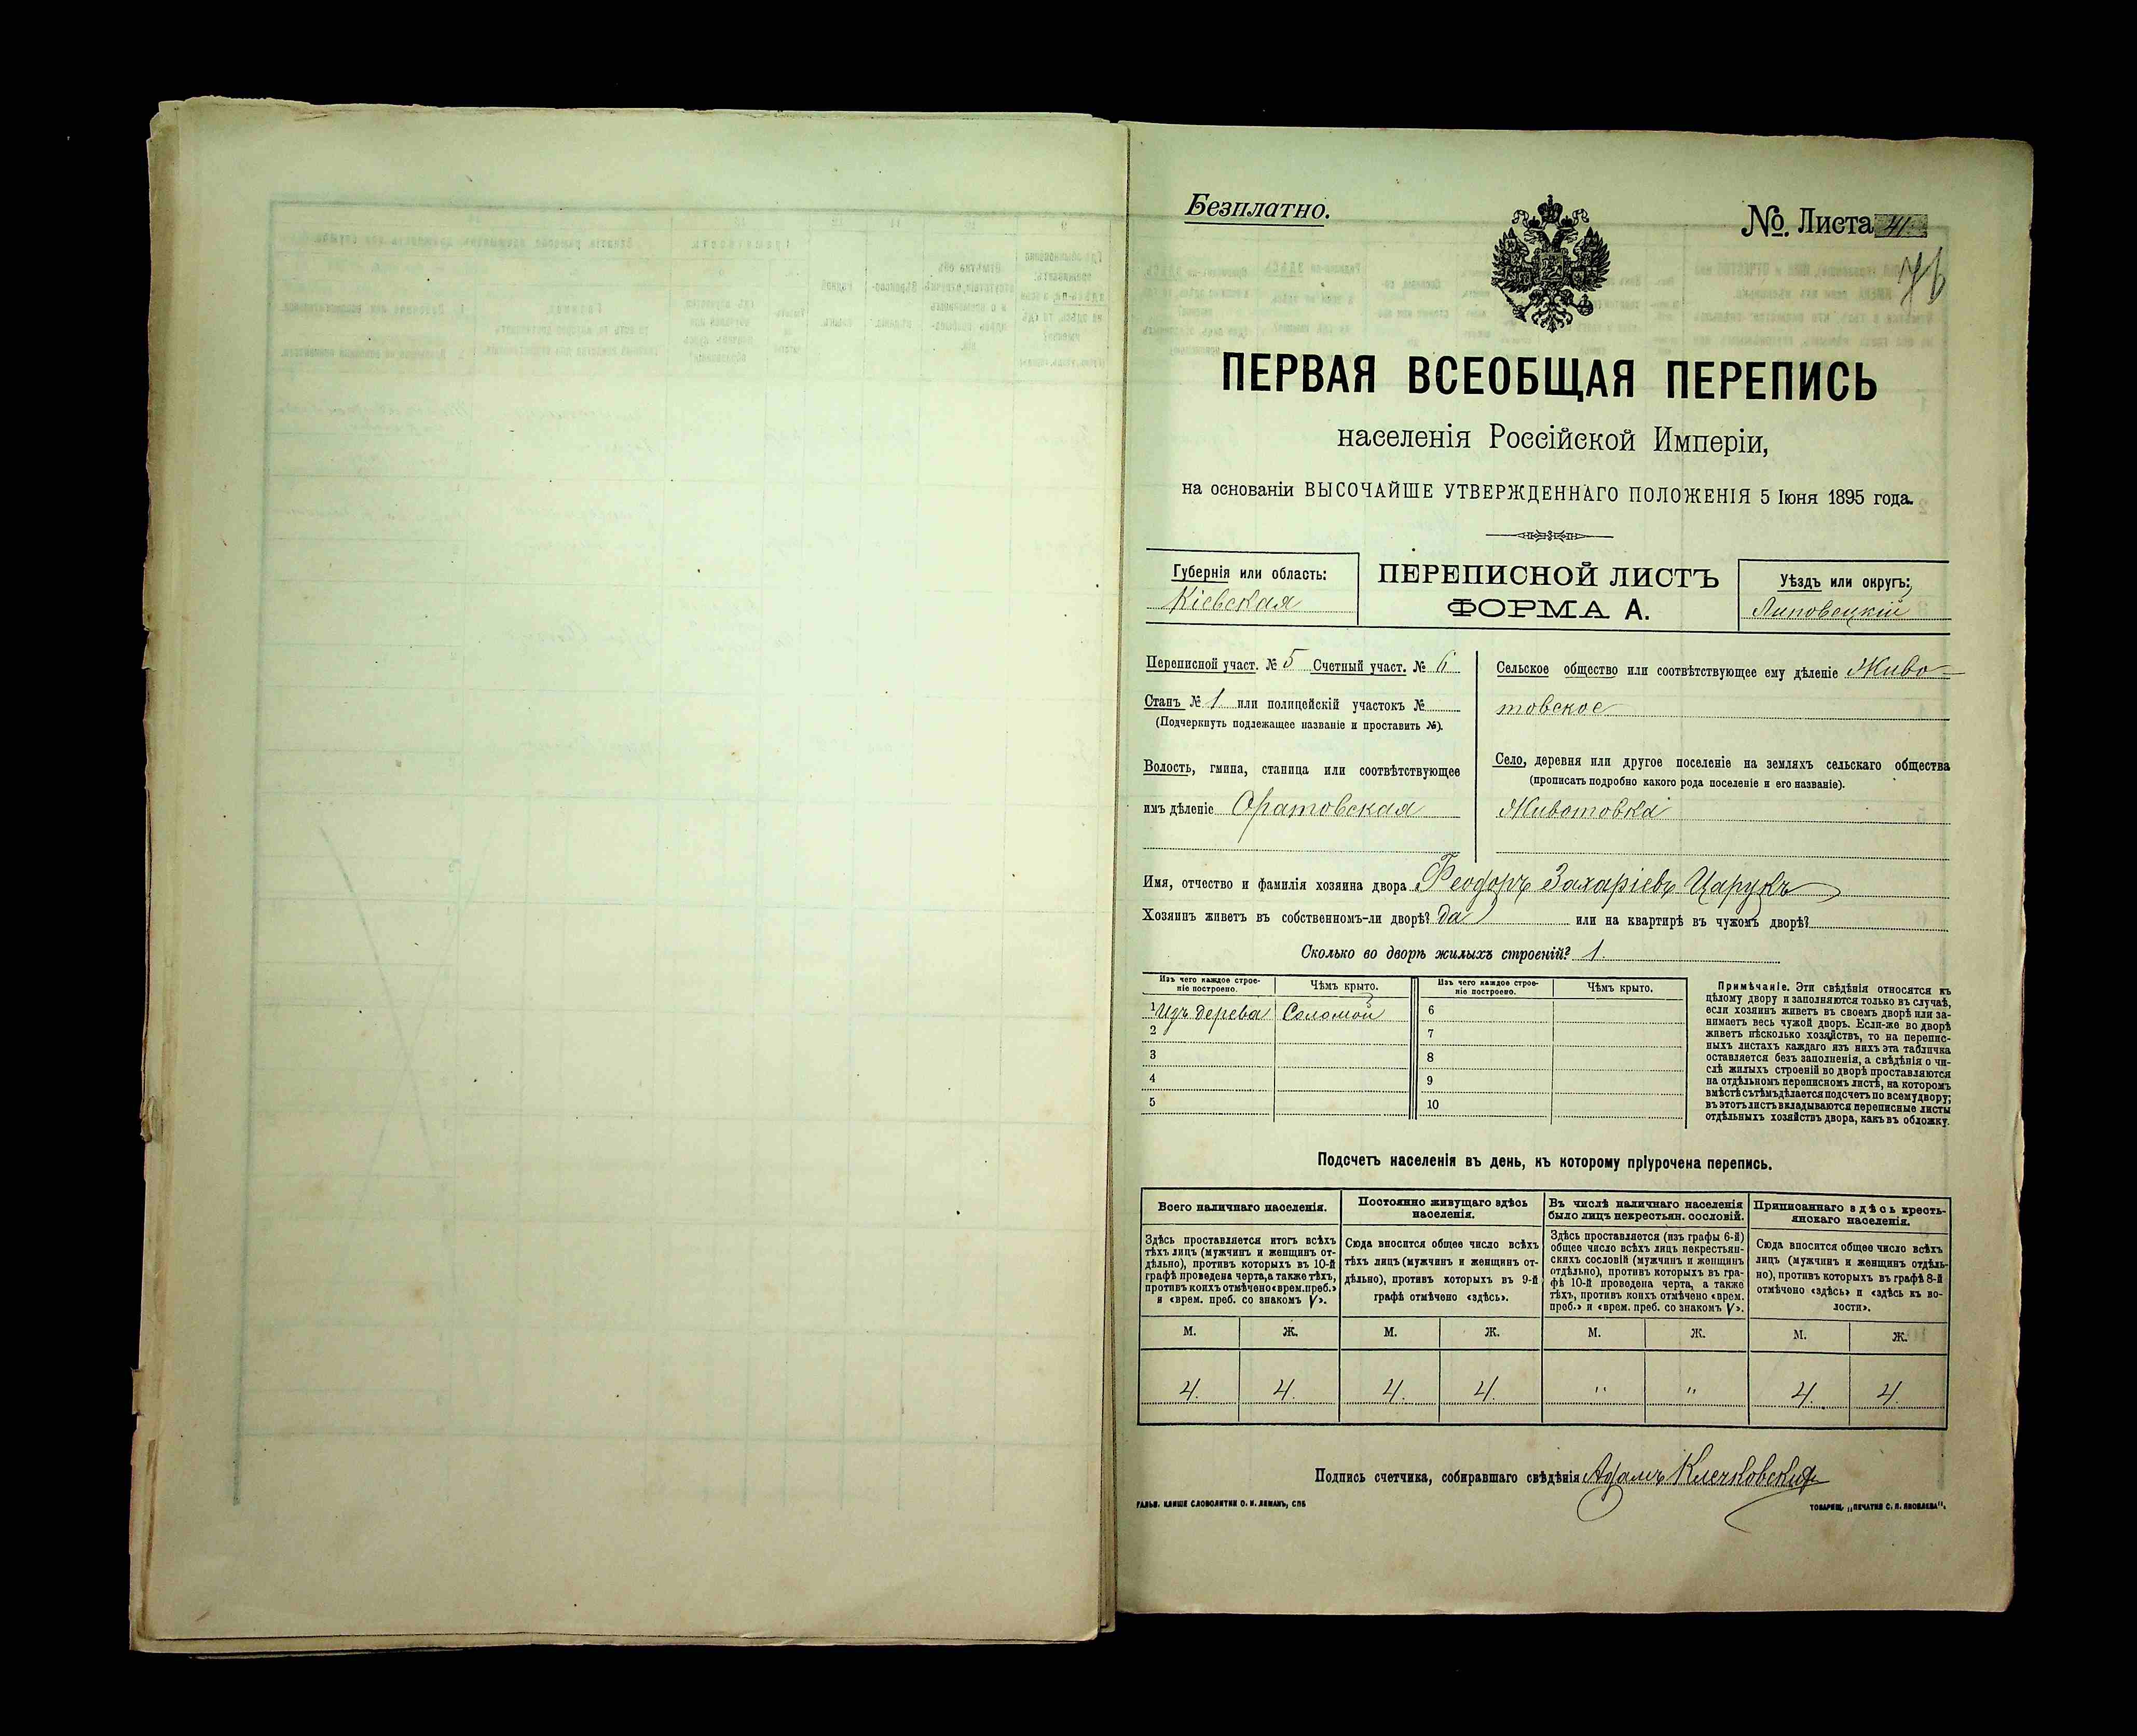 Безплатно.
№ Листа 41.
76
ПЕРВАЯ ВСЕОБЩАЯ ПЕРЕПИСЬ
населенія Россійской Имперіи,
на основаніи ВЫСОЧАЙШЕ УТВЕРЖДЕННАГО ПОЛОЖЕНІЯ 5 Іюня 1895 года.
Губернія или область:
Кіевская
ПЕРЕПИСНОЙ ЛИСТЪ
ФОРМА А.
Уѣздъ или округъ:
Липовецкій
Переписной участ. № 5 Счетный участ. № 6
Станъ № 1 или полицейскій участокъ №
(Подчеркнуть подлежащее названіе и проставить №).
Волость, гмина, станица или соотвѣтствующее
имъ дѣленіе Оратовская
Сельское общество или соотвѣтствующее ему дѣленіе Живо-
товское
Село, деревня или другое поселеніе на земляхъ сельскаго общества
(прописать подробно какого рода поселеніе и его названіе).
Животовка
Имя, отчество и фамилія хозяина двора Феодоръ Захаріевъ Царукъ
Хозяинъ живетъ въ собственномъ-ли дворѣ? да или на квартирѣ въ чужомъ дворѣ?
Сколько во дворѣ жилыхъ строеній? 1.
Изъ чего каждое строе-
ніе построено.
Чѣмъ крыто.
Изъ чего каждое строе-
ніе построено.
Чѣмъ крыто.
1 Изъ дерева Соломой 6
2 7
3 8
4 9
5 10
Примѣчаніе. Эти свѣдѣнія относятся къ
цѣлому двору и заполняются только въ случаѣ,
если хозяинъ живетъ въ своемъ дворѣ или за-
нимаетъ весь чужой дворъ. Если-же во дворѣ
живетъ нѣсколько хозяйствъ, то на перепис-
ныхъ листахъ каждаго изъ нихъ эта табличка
оставляется безъ заполненія, а свѣдѣнія о чи-
слѣ жилыхъ строеній во дворѣ проставляются
на отдѣльномъ переписномъ листѣ, на которомъ
вмѣстѣ съ тѣмъ дѣлается подсчетъ по всему двору;
въ этотъ листъ вкладываются переписные листы
отдѣльныхъ хозяйствъ двора, какъ въ обложку.
Подсчетъ населенія въ день, къ которому пріурочена перепись.
Всего наличнаго населенія.
Здѣсь проставляется итогъ всѣхъ
тѣхъ лицъ (мужчинъ и женщинъ от-
дѣльно), противъ которыхъ въ 10-й
графѣ проведена черта, а также тѣхъ,
противъ коихъ отмѣчено «врем. преб.»
и «врем. преб. со знакомъ V».
Постоянно живущаго здѣсь
населенія.
Сюда вносится общее число всѣхъ
тѣхъ лицъ (мужчинъ и женщинъ от-
дѣльно), противъ которыхъ въ 9-й
графѣ отмѣчено «здѣсь».
Въ числѣ наличнаго населенія
было лицъ некрестьян. сословій.
Здѣсь проставляется (изъ графы 6-й)
общее число всѣхъ лицъ некрестьян-
скихъ сословій (мужчинъ и женщинъ
отдѣльно), противъ которыхъ въ гра-
фѣ 10-й проведена черта, а также
тѣхъ, противъ коихъ отмѣчено «врем.
преб.» и «врем. преб. со знакомъ V».
Приписаннаго здѣсь кресть-
янскаго населенія.
Сюда вносится общее число всѣхъ
лицъ (мужчинъ и женщинъ отдѣль-
но), противъ которыхъ въ графѣ 8-й
отмѣчено «здѣсь» и «здѣсь къ во-
лости».
М. Ж. М. Ж. М. Ж. М. Ж.
4. 4. 4. 4. " " 4. 4.
Подпись счетчика, собиравшаго свѣдѣнія Адамъ Клечковскій
ГАЛЬВ. КЛИШЕ СЛОВОЛИТНИ О. И. ЛЕМАНЪ, СПБ
ТОВАРИЩ. „ПЕЧАТНЯ С. П. ЯКОВЛЕВА".